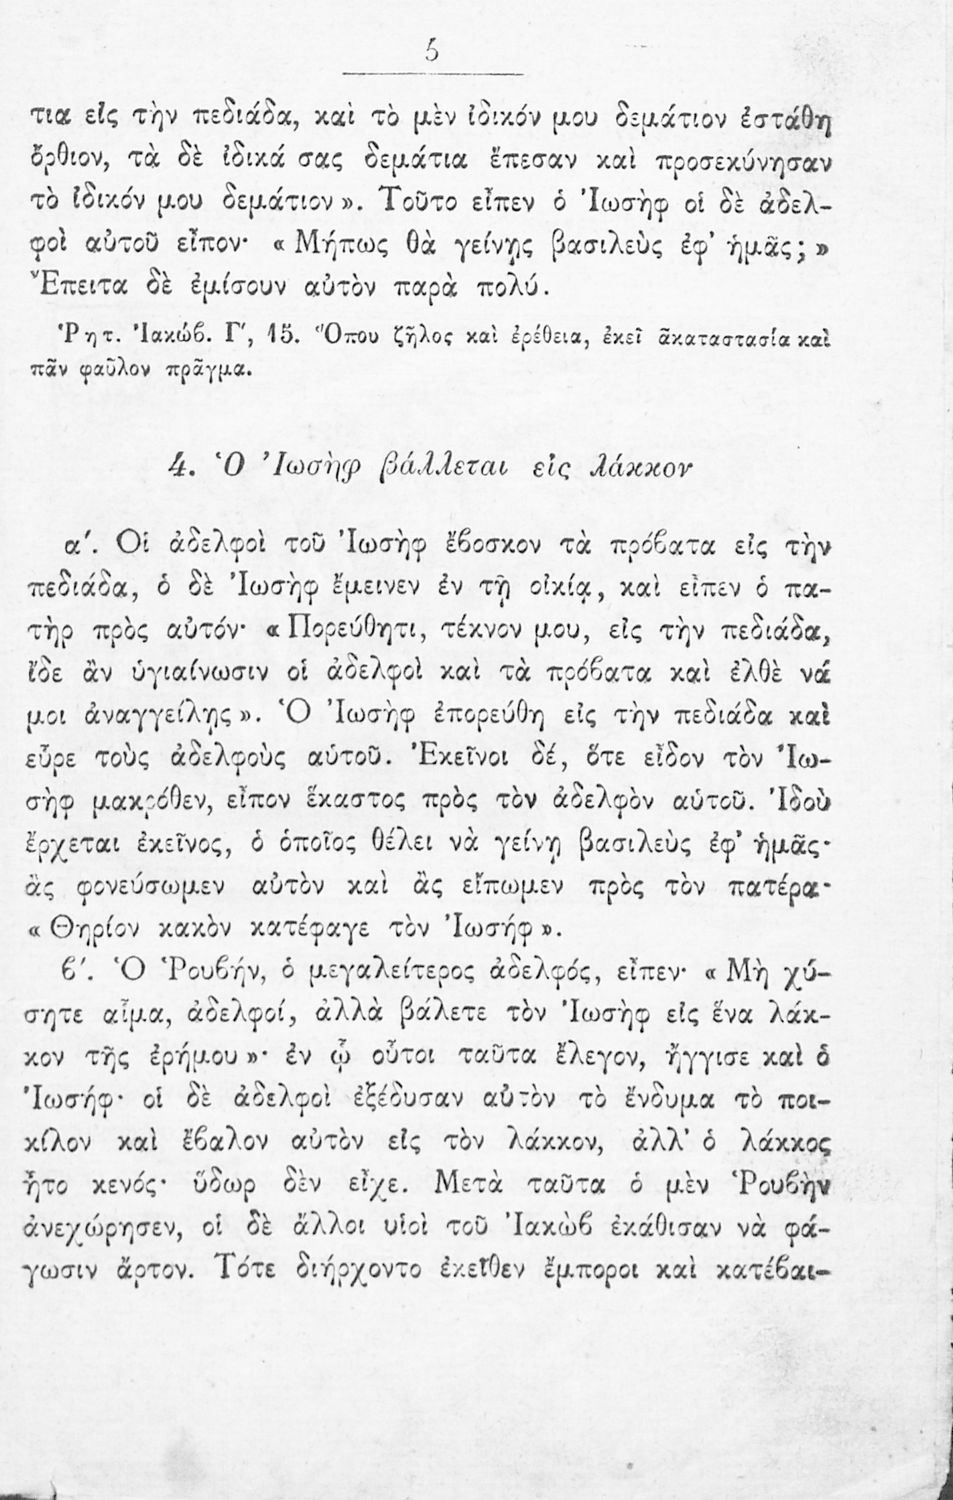 5
τια εἰς τὴν πεδιάδα, καὶ τὸ μὲν ἰδικόν μου δεμάτιον ἐστάθη
ὄρθιον, τὰ δὲ ἰδικά σας δεμάτια ἔπεσαν καὶ προσεκύνησαν
τὸ ἰδικόν μου δεμάτιον». Τοῦτο εἶπεν ὁ Ἰωσὴφ οἱ δὲ ἀδελ-
φοὶ αὐτοῦ εἶπον· «Μήπως θὰ γείνῃς βασιλεὺς ἐφ' ἡμᾶς; »
Ἔπειτα δὲ ἐμίσουν αὐτὸν παρὰ πολύ.
Ῥητ. Ἰακώβ. Γ', 15. Ὅπου ζῆλος καὶ ἐρέθεια, ἐκεῖ ἀκαταστασία καὶ
πᾶν φαῦλον πρᾶγμα.
4. Ὁ Ἰωσὴφ βάλλεται εἰς λάκκον
α'. Οἱ ἀδελφοὶ τοῦ Ἰωσὴφ ἔβοσκον τὰ πρόβατα εἰς τὴν
πεδιάδα, ὁ δὲ Ἰωσὴφ ἔμεινεν ἐν τῇ οἰκίᾳ, καὶ εἶπεν ὁ πα-
τὴρ πρὸς αὐτόν· «Πορεύθητι, τέκνον μου, εἰς τὴν πεδιάδα,
ἴδε ἂν ὑγιαίνωσιν οἱ ἀδελφοὶ καὶ τὰ πρόβατα καὶ ἐλθὲ νά
μοι ἀναγγείλῃς». Ὁ Ἰωσὴφ ἐπορεύθη εἰς τὴν πεδιάδα καὶ
εὗρε τοὺς ἀδελφοὺς αὑτοῦ. Ἐκεῖνοι δέ, ὅτε εἶδον τὸν Ἰω-
σὴφ μακρόθεν, εἶπον ἕκαστος πρὸς τὸν ἀδελφὸν αὑτοῦ. Ἰδοὺ
ἔρχεται ἐκεῖνος, ὁ ὁποῖος θέλει νὰ γείνῃ βασιλεὺς ἐφ' ἡμᾶς·
ἂς φονεύσωμεν αὐτὸν καὶ ἂς εἴπωμεν πρὸς τὸν πατέρα·
«Θηρίον κακὸν κατέφαγε τὸν Ἰωσήφ».
β'. Ὁ Ῥουβήν, ὁ μεγαλείτερος ἀδελφός, εἶπεν· «Μὴ χύ-
σητε αἷμα, ἀδελφοί, ἀλλὰ βάλετε τὸν Ἰωσὴφ εἰς ἕνα λάκ-
κον τῆς ἐρήμου»· ἐν ᾧ οὗτοι ταῦτα ἔλεγον, ἤγγισε καὶ ὁ
Ἰωσήφ· οἱ δὲ ἀδελφοὶ ἐξέδυσαν αὐτὸν τὸ ἔνδυμα τὸ ποι-
κίλον καὶ ἔβαλον αὐτὸν εἰς τὸν λάκκον, ἀλλ' ὁ λάκκος
ἦτο κενός· ὕδωρ δὲν εἶχε. Μετὰ ταῦτα ὁ μὲν Ῥουβὴν
ἀνεχώρησεν, οἱ δὲ ἄλλοι υἱοὶ τοῦ Ἰακὼβ ἐκάθισαν νὰ φά-
γωσιν ἄρτον. Τότε διήρχοντο ἐκεῖθεν ἔμποροι καὶ κατέβαι-